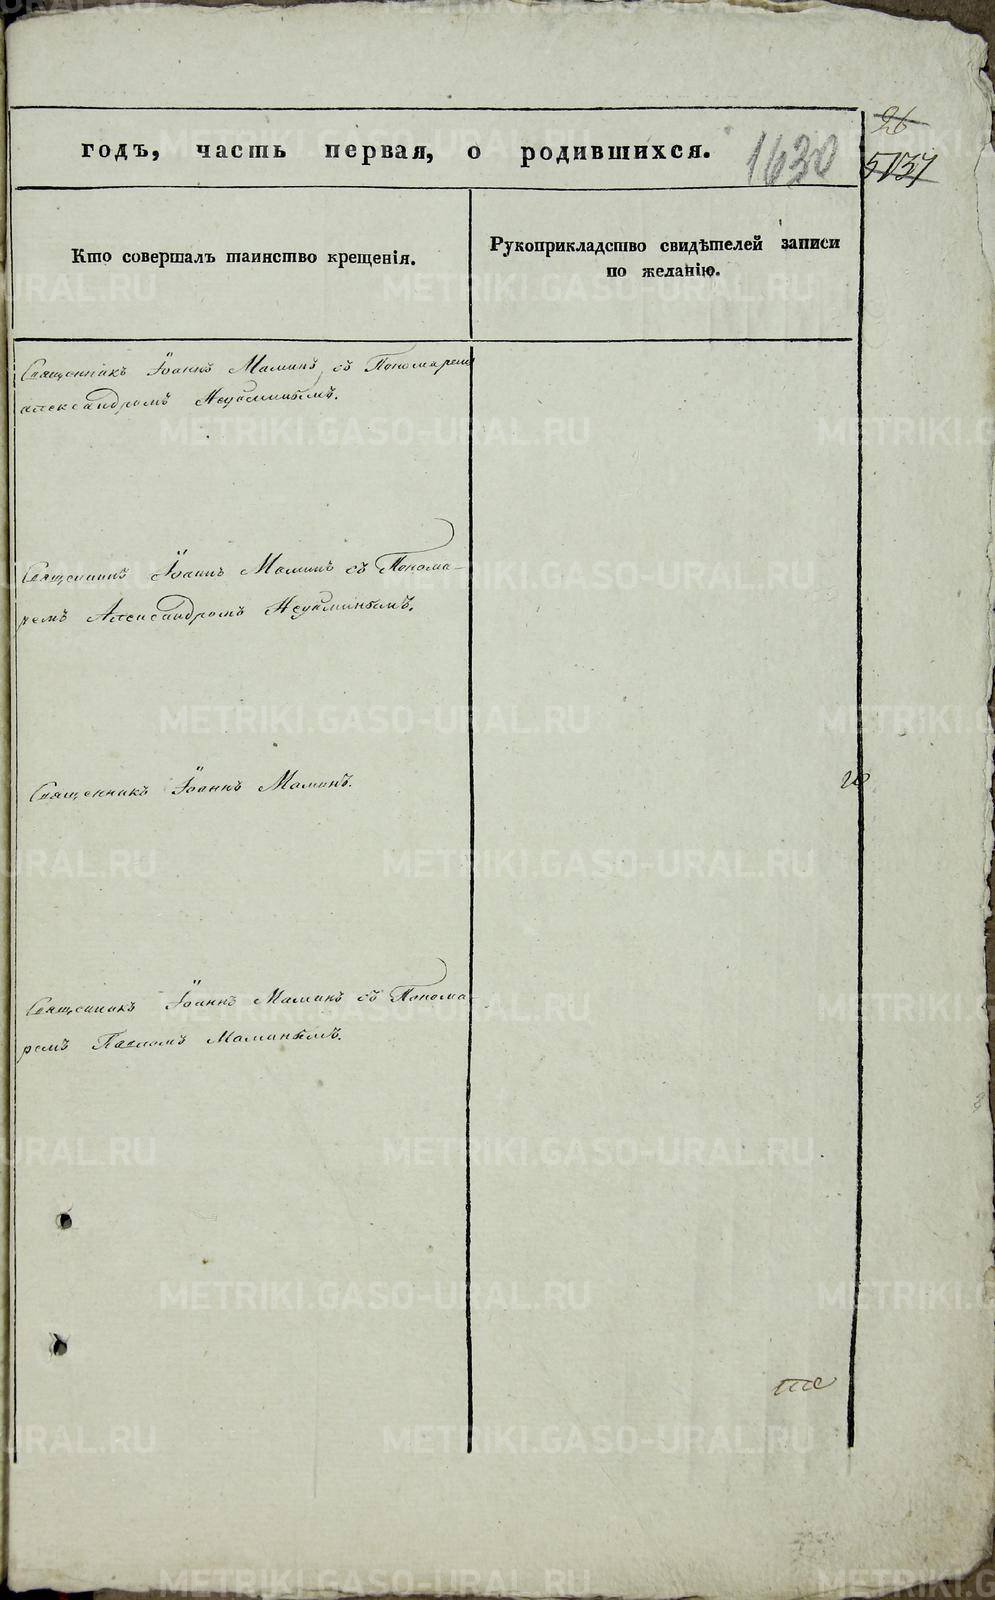 годъ, часть первая, о родившихся.
1630
26
5137
Кто совершалъ таинство крещенія.
Рукоприкладство свидѣтелей записи
по желанію.
Священникъ Іоаннъ Маминъ съ Пономаремъ
Александромъ Неуйминымъ.
Священникъ Іоаннъ Маминъ съ Понома-
ремъ Александромъ Неуйминымъ.
Священникъ Іоаннъ Маминъ.
Священникъ Іоаннъ Маминъ съ Понома-
ремъ Павломъ Маминымъ.
METRIKI.GASO-URAL.RU